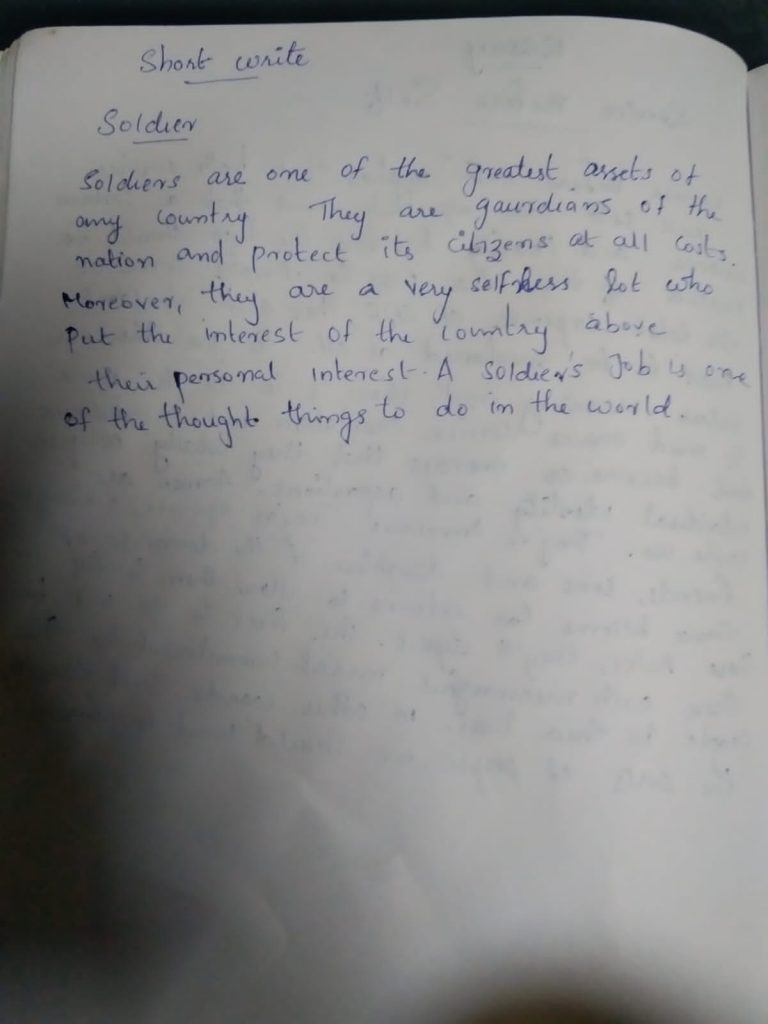 Short write
Soldier
Soldiers are one of the greatest assets of
any country They are gaurdians of the
nation and protect its citizens at all costs.
Moreover, they are a very selfless lot who
put the interest of the country above
their personal interest. A soldier's Job is one
of the thought things to do in the world.